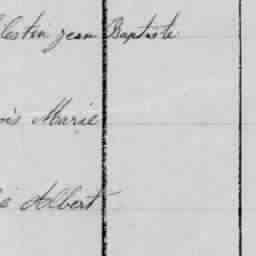 lestin jean Baptiste
ois Marie
é Albert